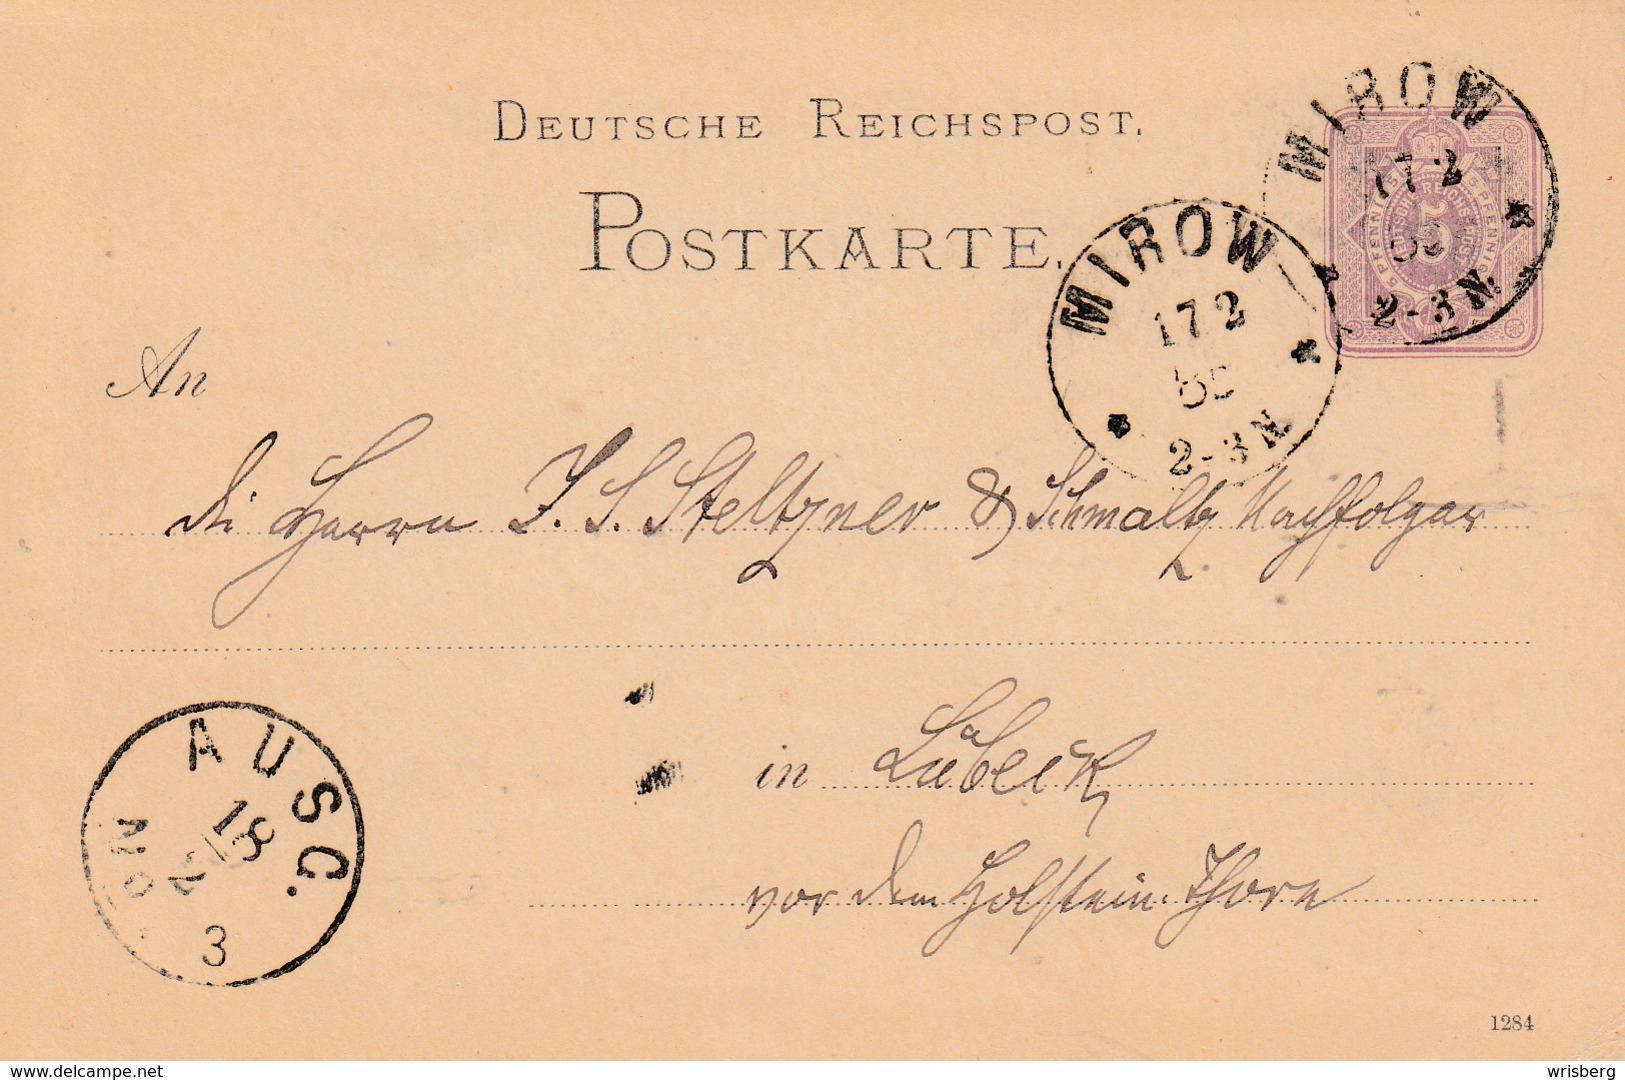 DEUTSCHE REICHSPOST.
POSTKARTE.
MIROW
17 2
2-3 N.
MIROW
17 2
85
2-3 N.
5 PFENNIG
5
An
die Herren J. S. Steltzner & Schmaltz Nachfolger
in Lübeck
vor dem Holstein. Thore
AUSG.
No.
18
2
3
1284
www.delcampe.net
wrisberg